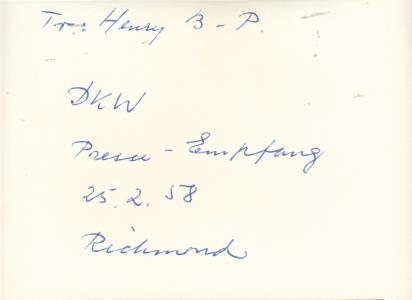 Tr.: Henry B-P.
DKW
Presse-Empfang
25.2.58
Richmond